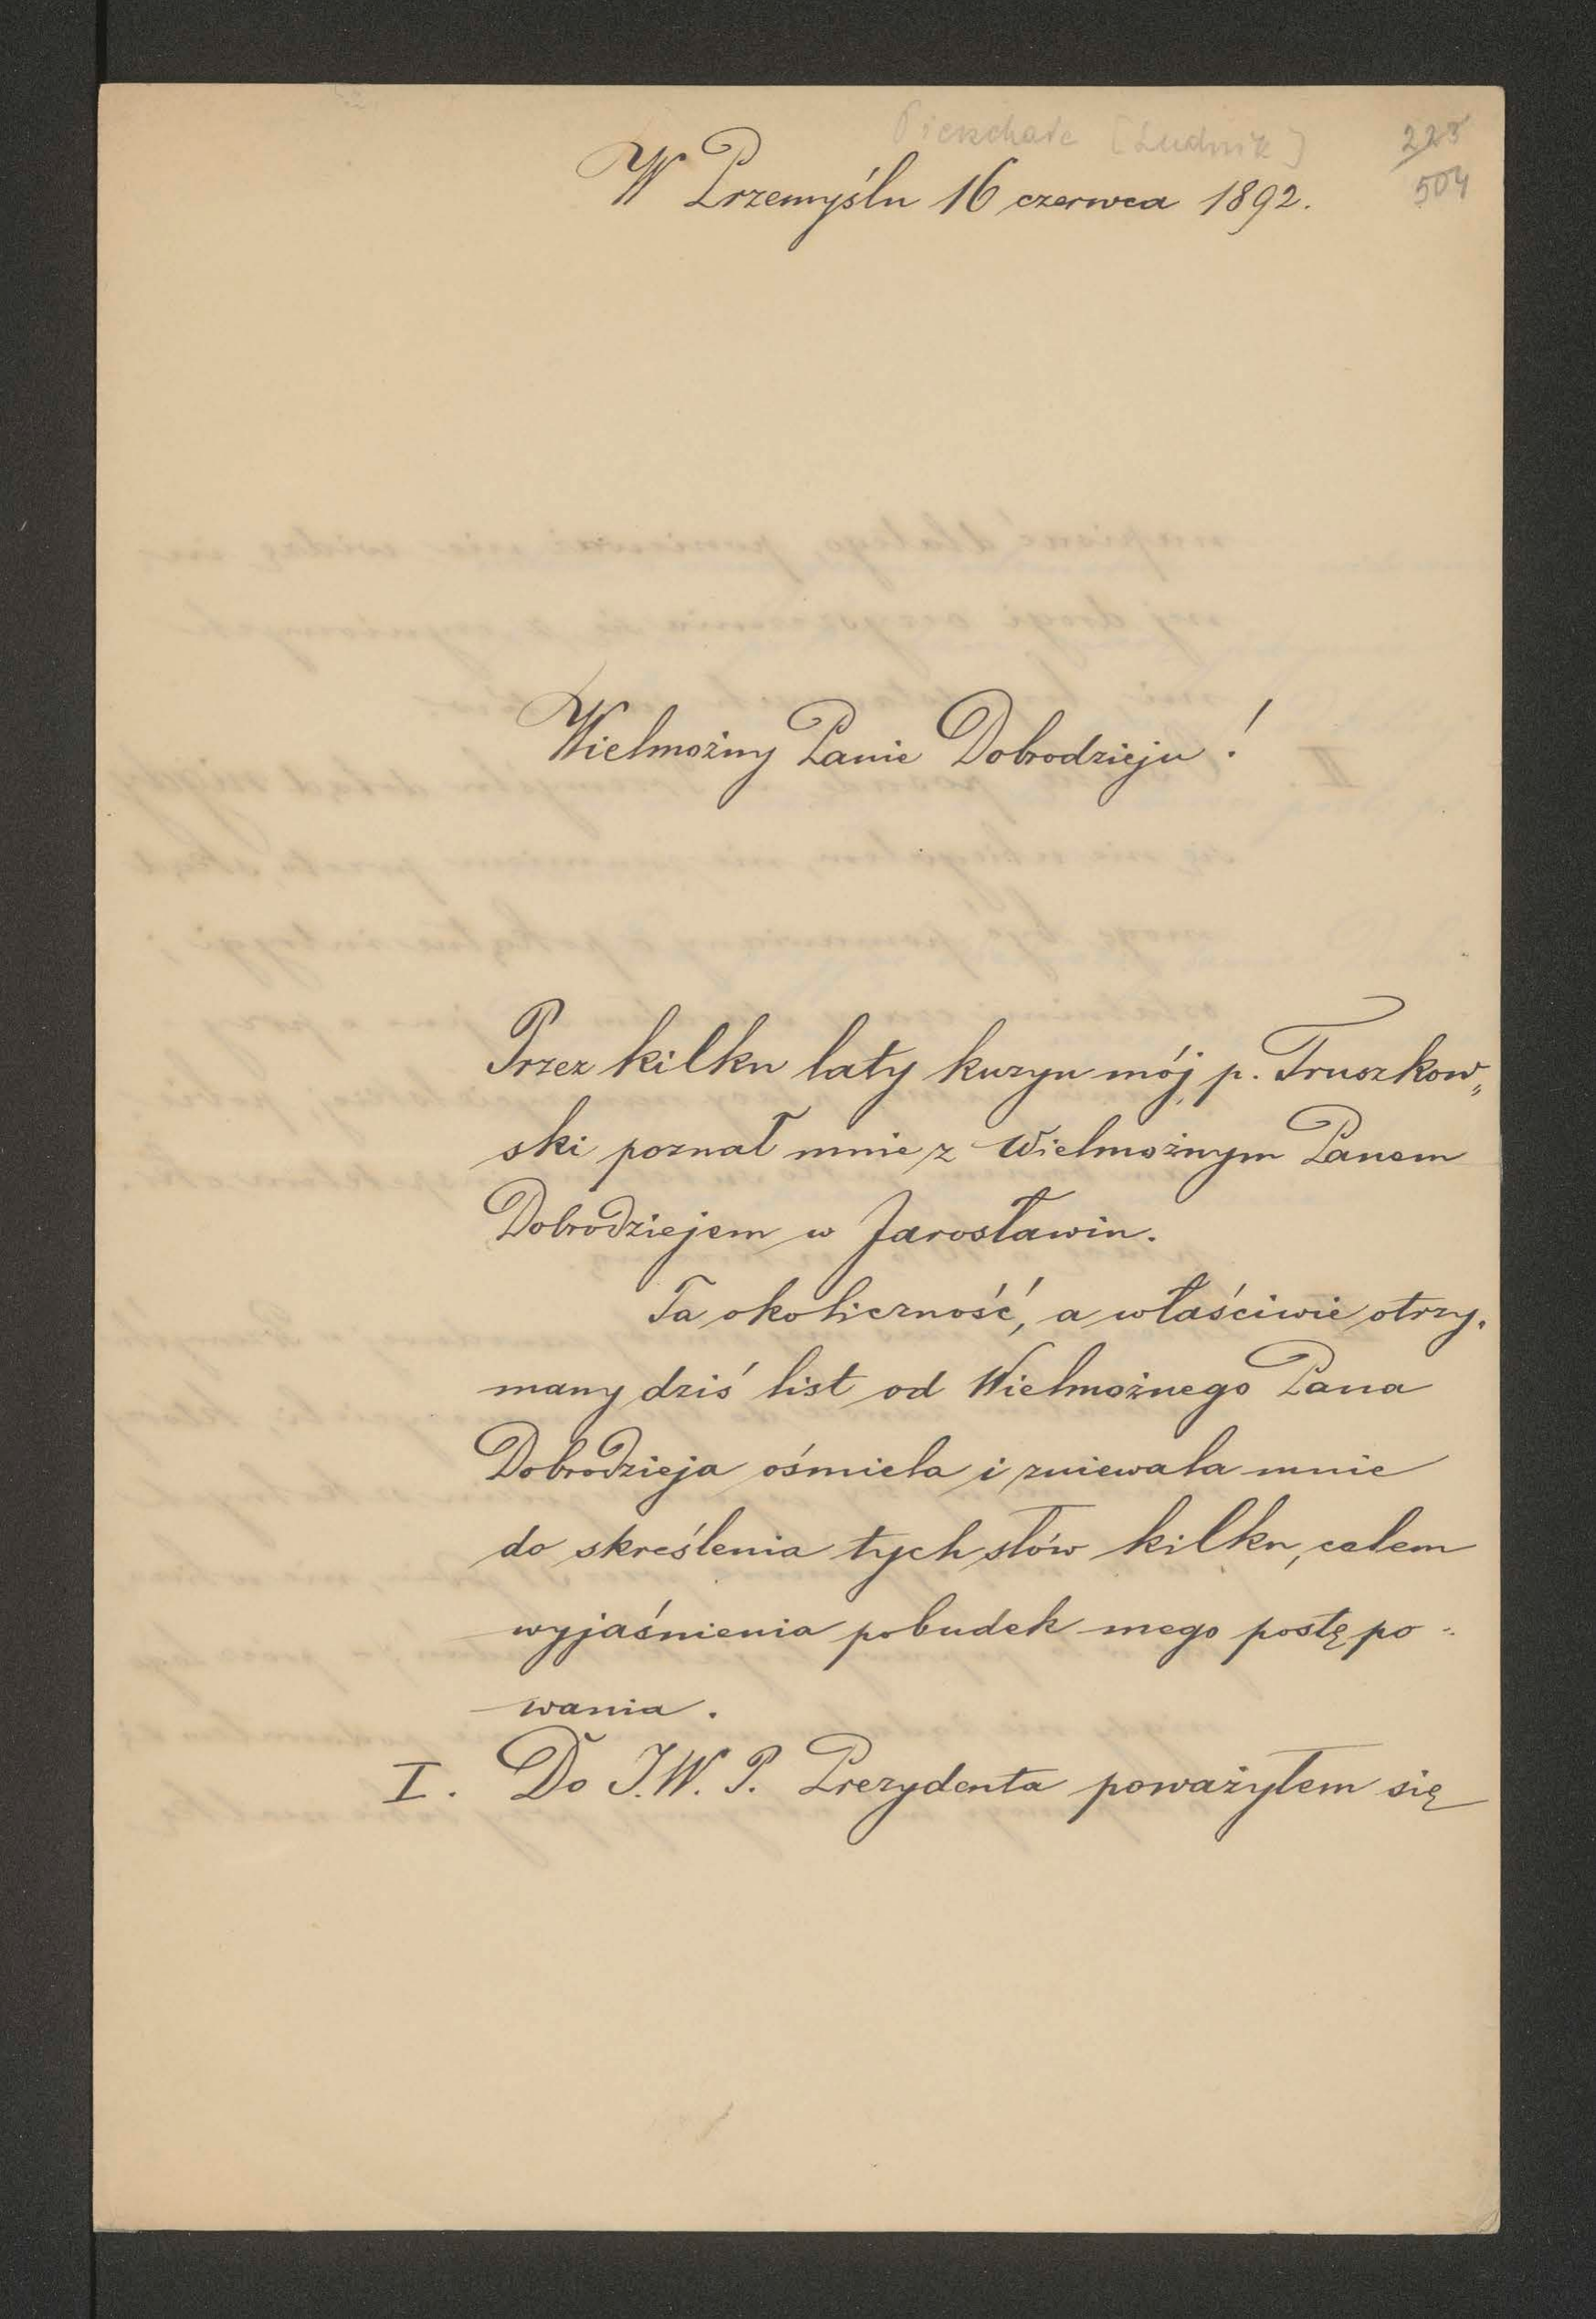 [Ludwik]
223
504
W Przemyślu 16 czerwca 1892.
Wielmożny Panie Dobrodzieju!
Przez kilku laty kuzyn mój p. Truszkow„
ski poznał mnie z Wielmożnym Panem
Dobrodziejem w Jarosławiu.
Ta okoliczność, a właściwie otrzy„
many dziś list od Wielmożnego Pana
Dobrodzieja ośmiela i zniewala mnie
do skreślenia tych słów kilku, celem
wyjaśnienia pobudek mego postępo„
wania.
I. Do J.W.P. Prezydenta poważyłem się